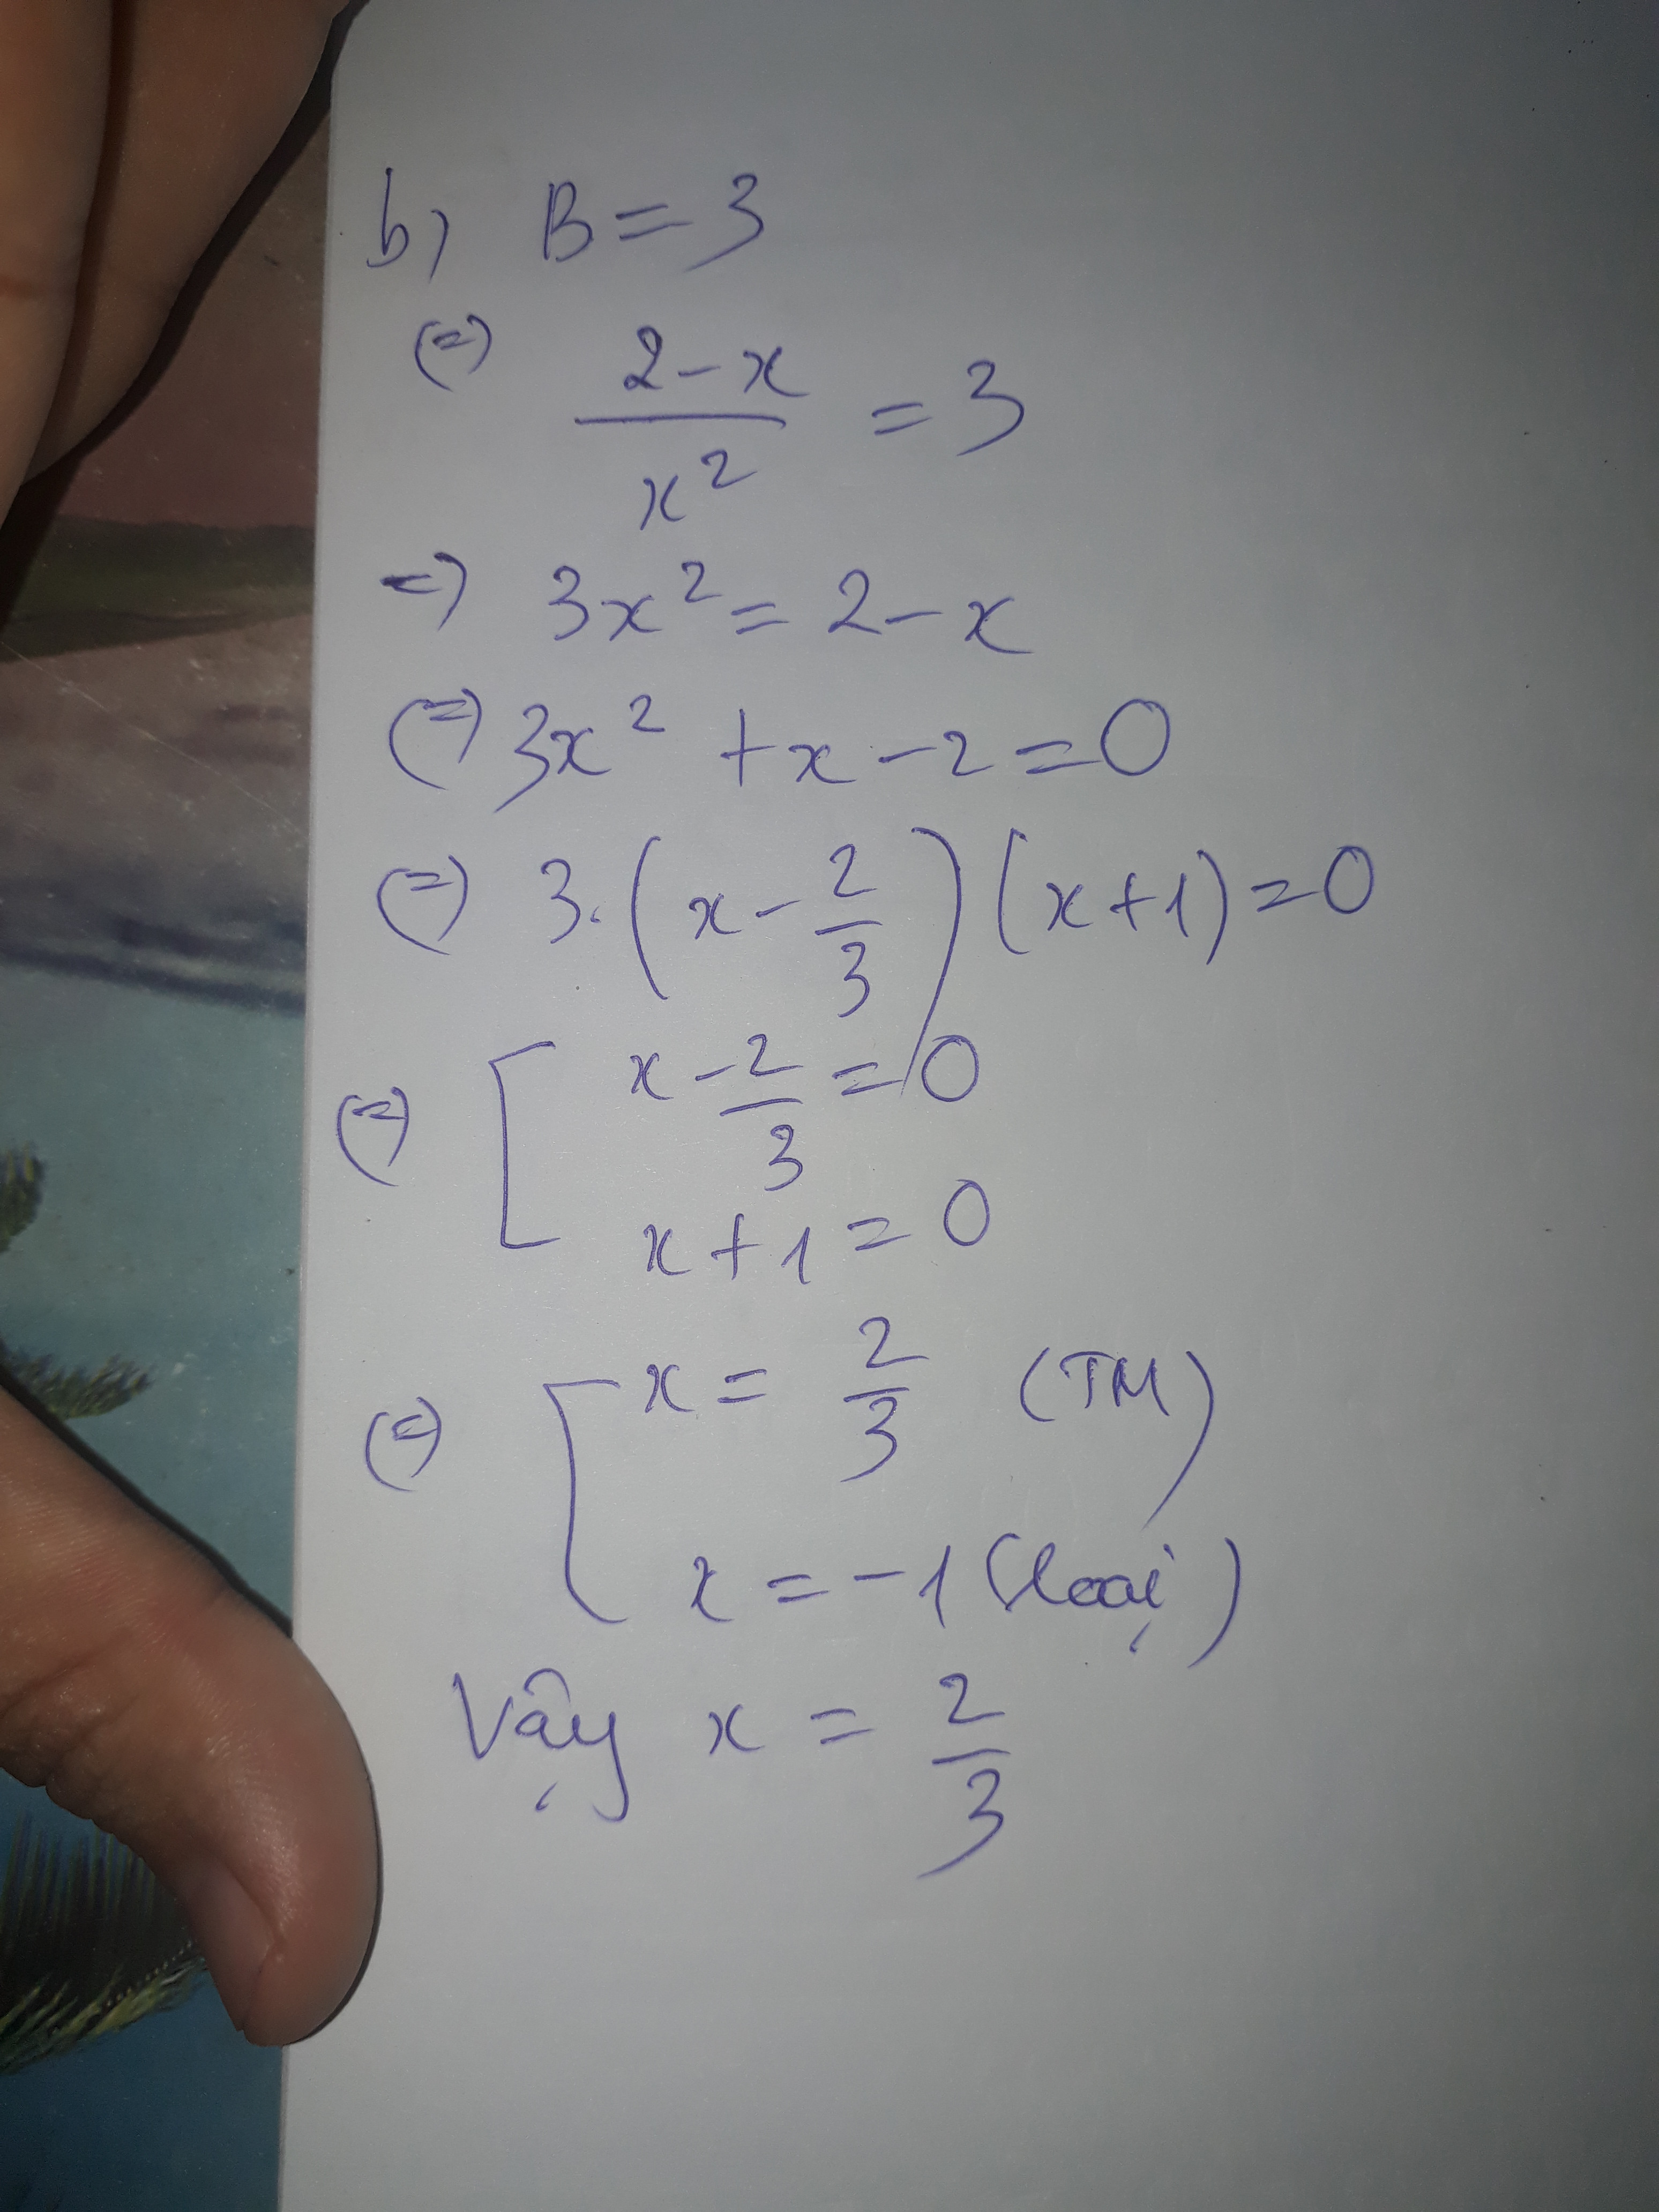 b) B = 3
(=) 2-x / x² = 3
=) 3x² = 2-x
(=) 3x² + x - 2 = 0
(=) 3. (x - 2/3) (x+1) = 0
(=) [ x - 2/3 = 0
x + 1 = 0
(=) [ x = 2/3 (TM)
x = -1 (loại)
Vậy x = 2/3